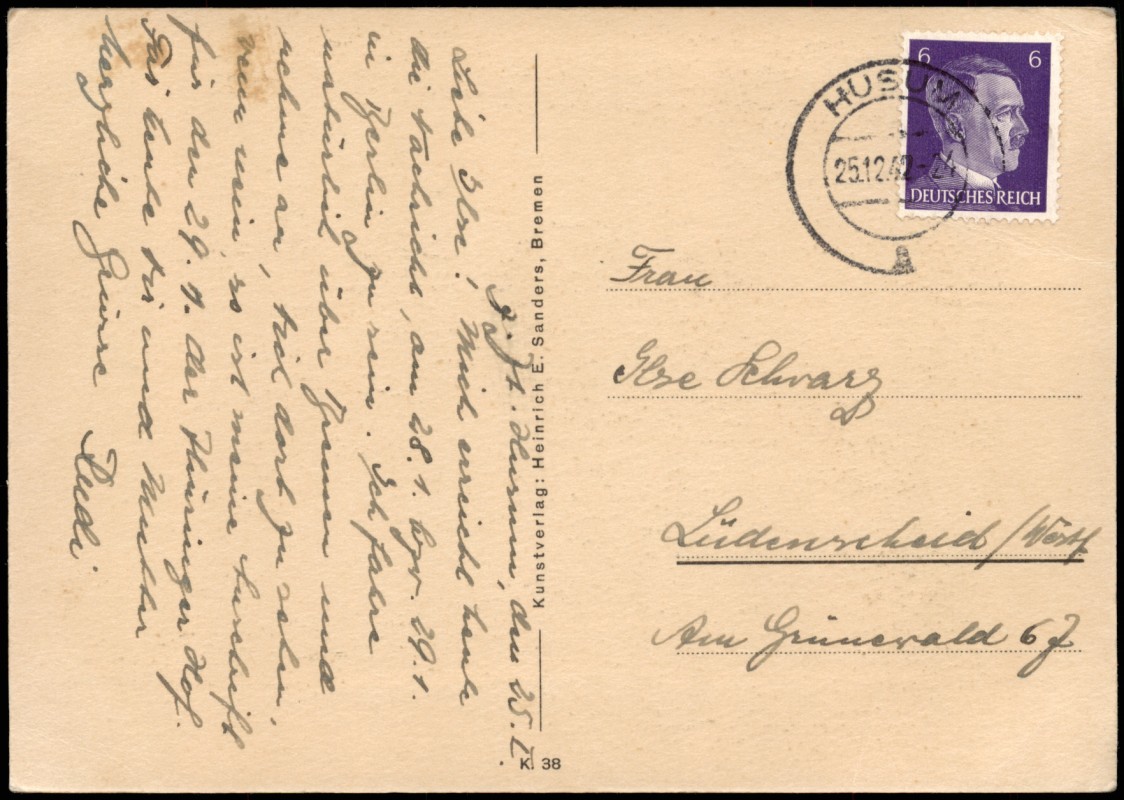 z. Zt. Husum, den 25. I.
Liebe Ilse! Mich erreicht heute
die Nachricht, am 28. 1. bzw. 29. 1.
in Berlin zu sein. Ich fahre
natürlich über Bremen und
nehme an, Dich dort zu sehen,
wenn nein, so ist meine Anschrift
für den 29. 1. der Thüringer Hof.
Für heute Dir und Mutter
herzliche Grüsse Rudi
Kunstverlag: Heinrich E. Sanders, Bremen
K. 38
6 6
DEUTSCHES REICH
HUSUM
25.12.42-24
a
Frau
Ilse Schwarz
Lüdenscheid /Westf
Am Grünewald 67